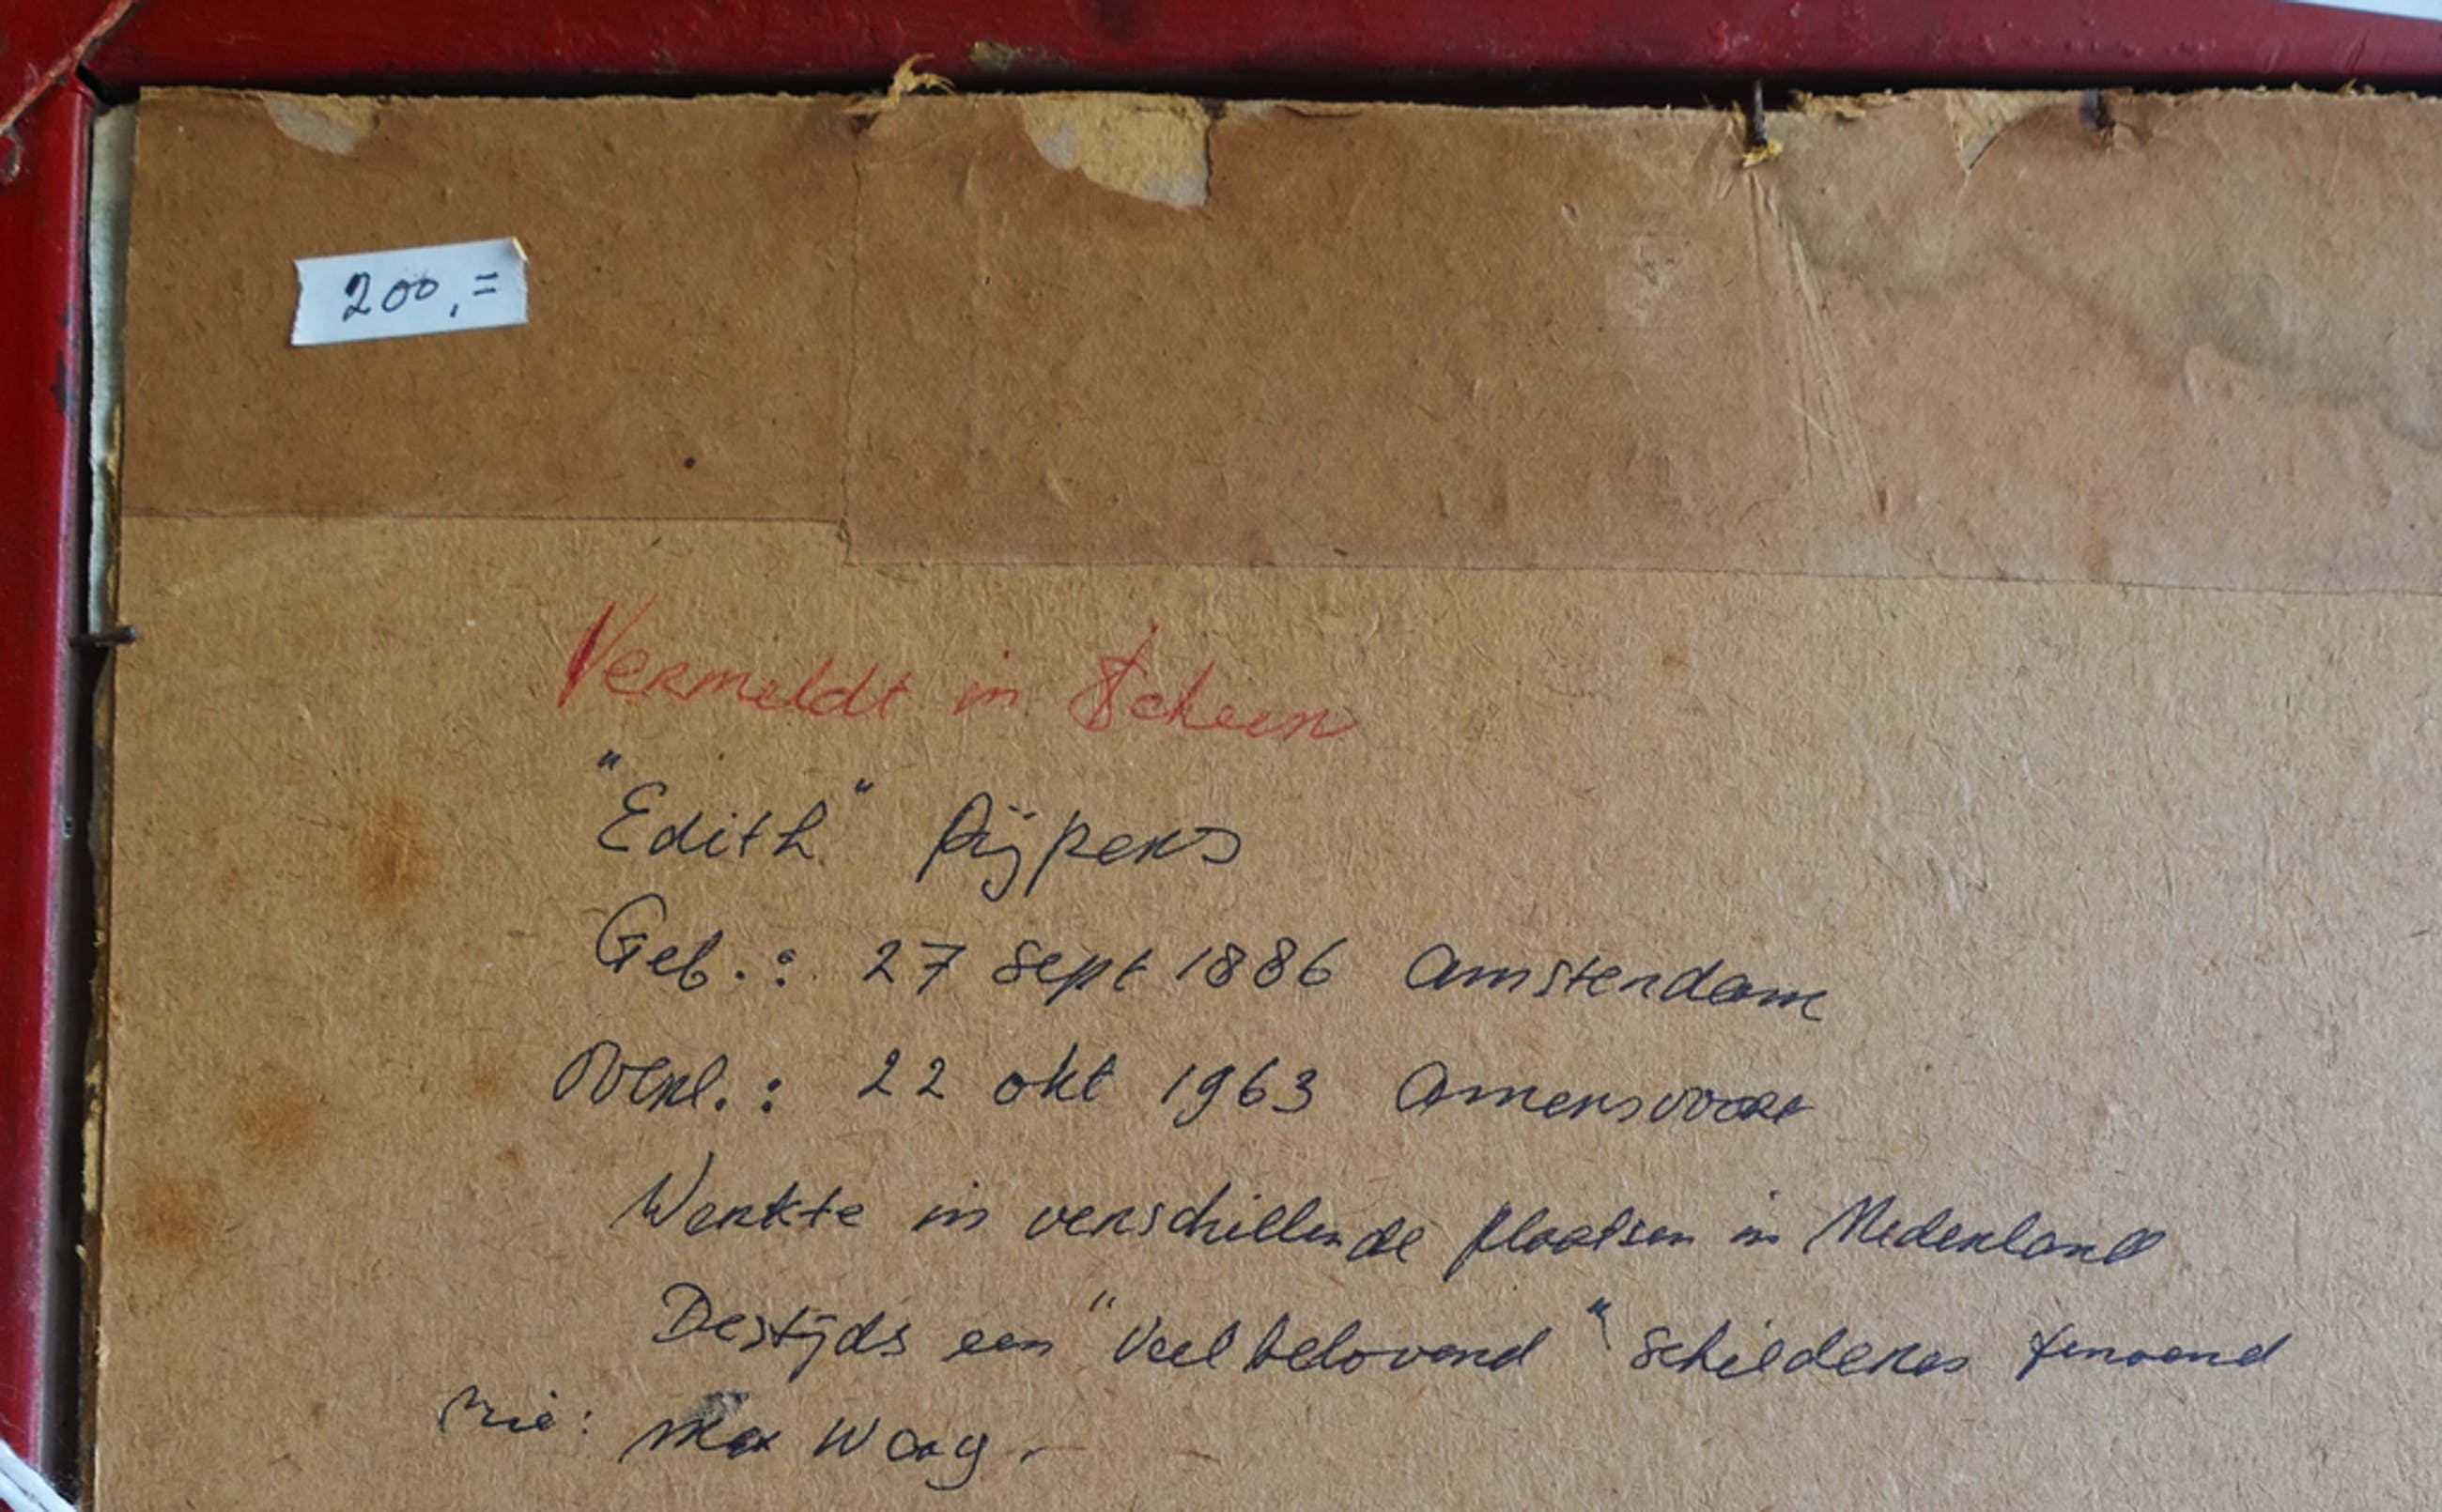 200,=
Vermeldt in Scheen
"Edith" Pijpers
Geb.: 27 sept 1886 Amsterdam
Overl.: 22 okt 1963 Amersvoort
Werkte in verschillende plaatsen in Nederland
Destijds een "Veelbelovend" schilderes
Max Waag.